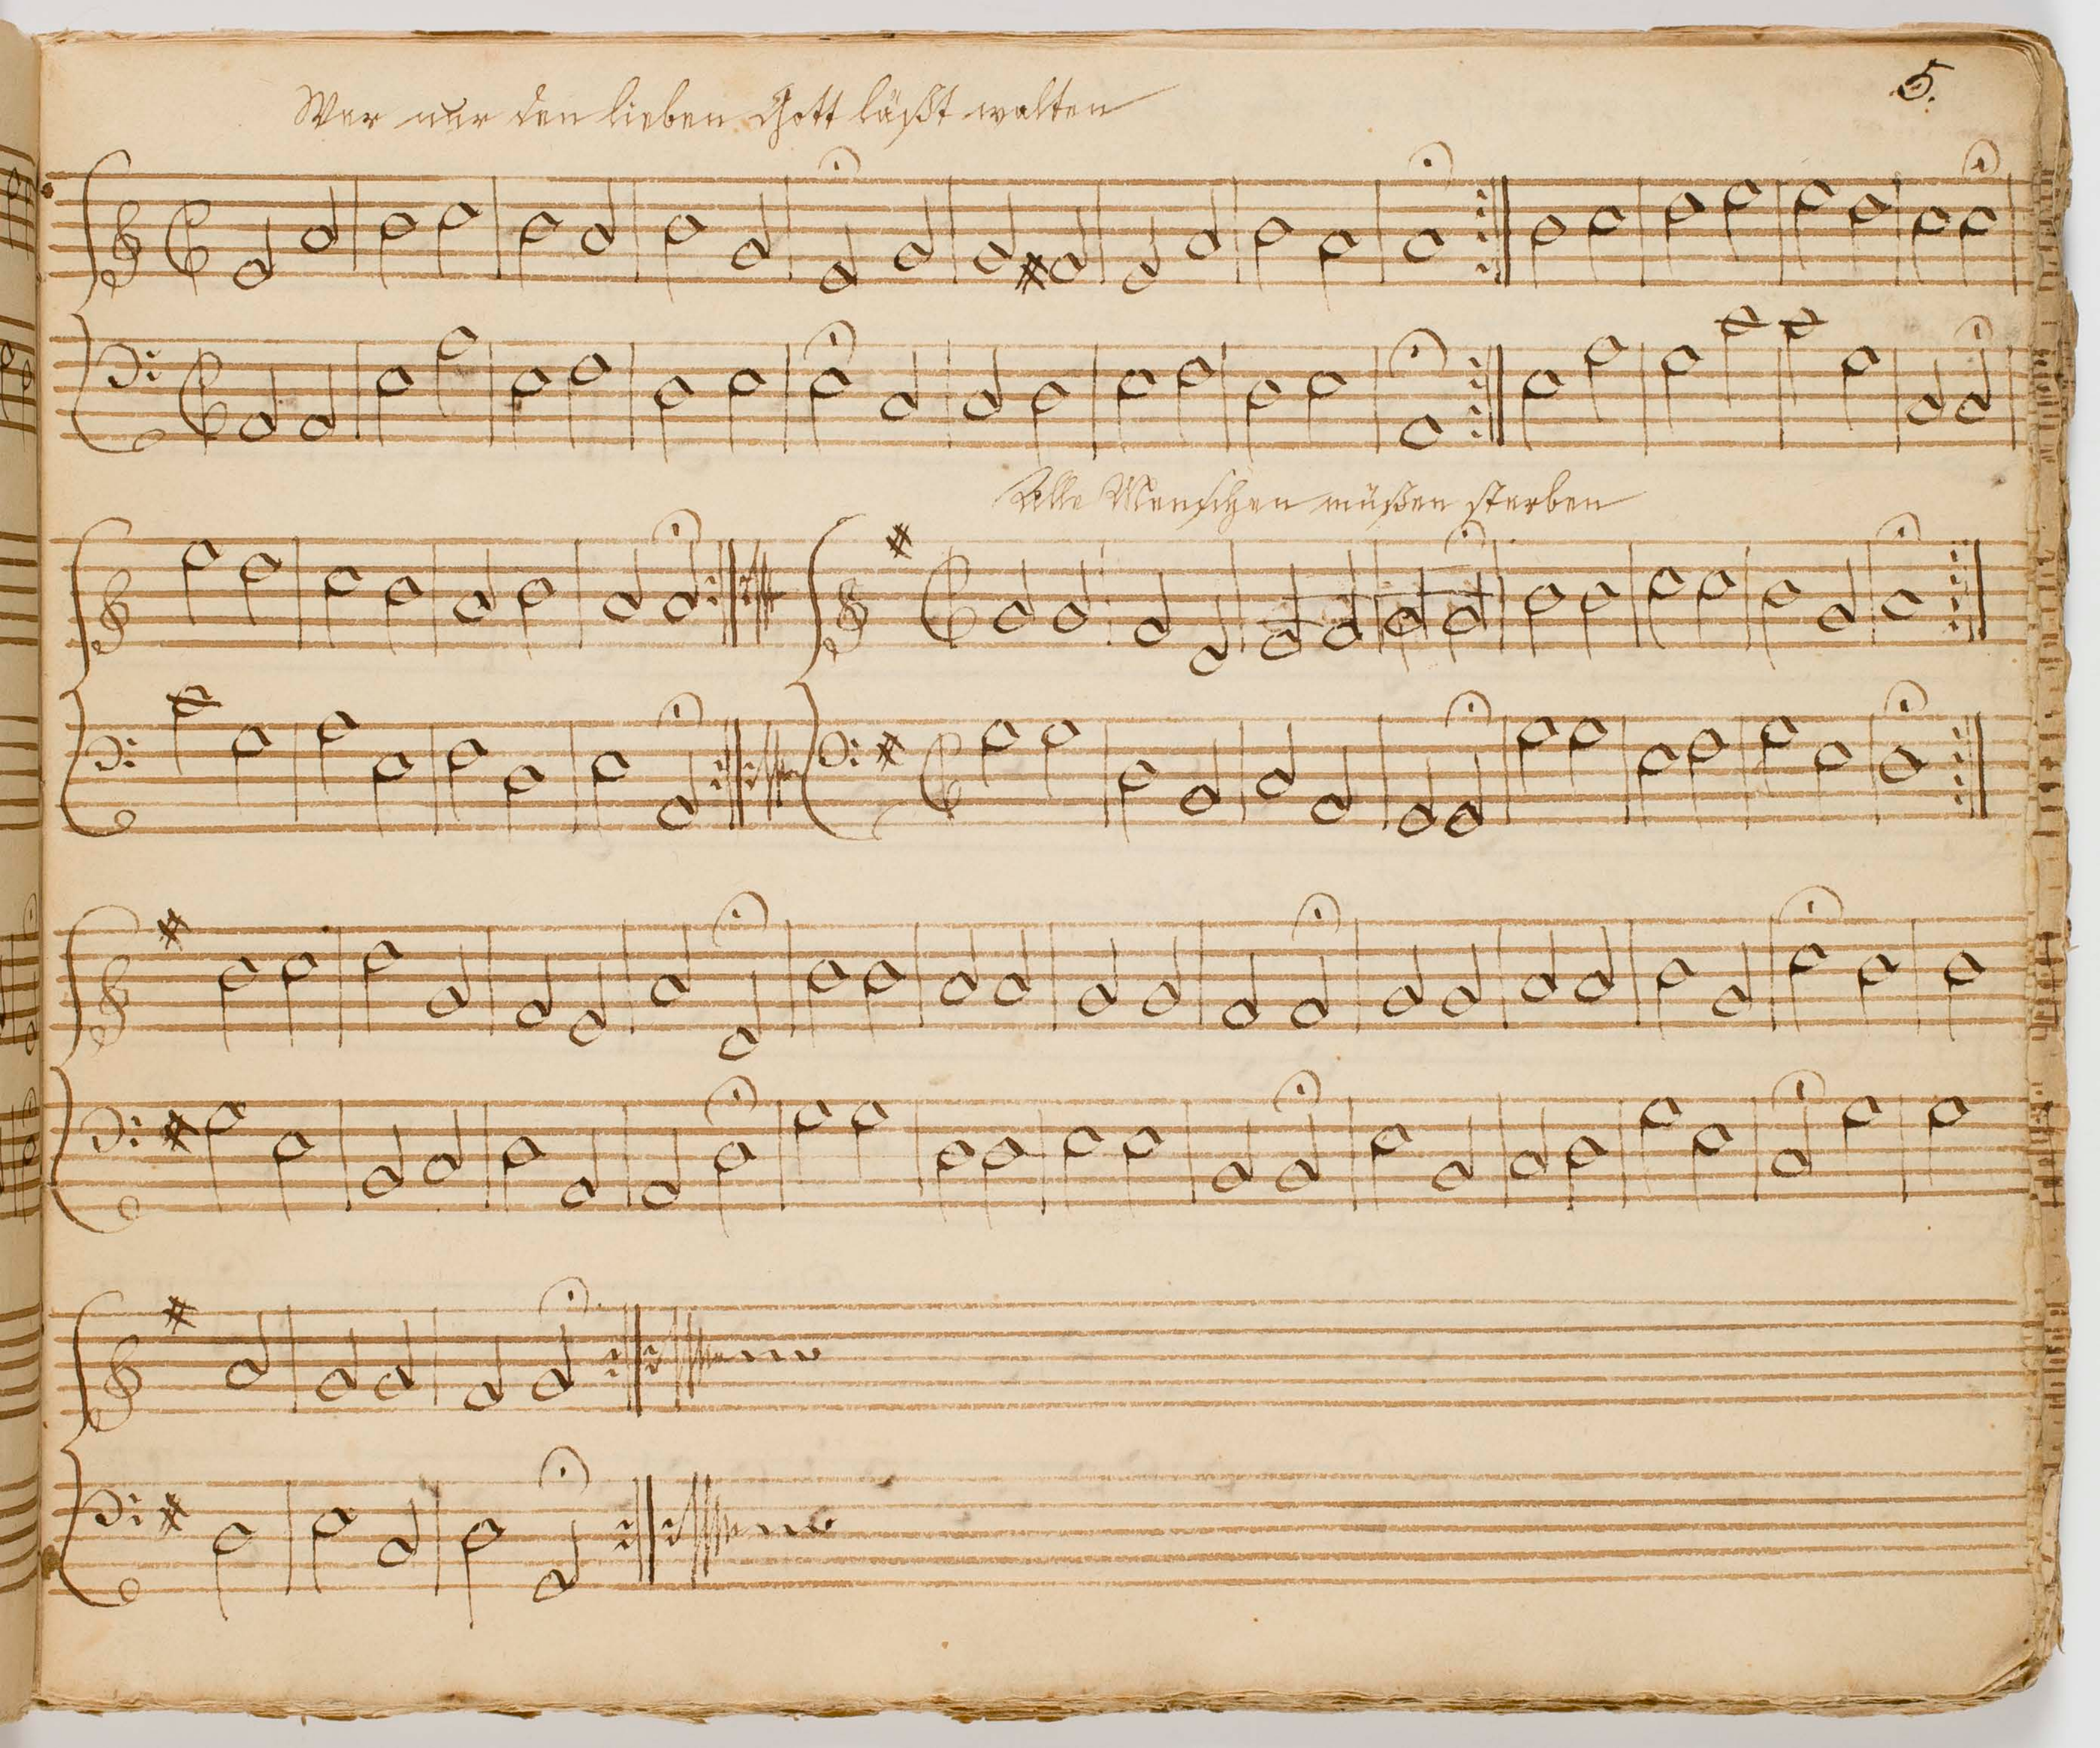 5.
Wer nur den lieben Gott läßt walten
Alle Menschen müßen sterben